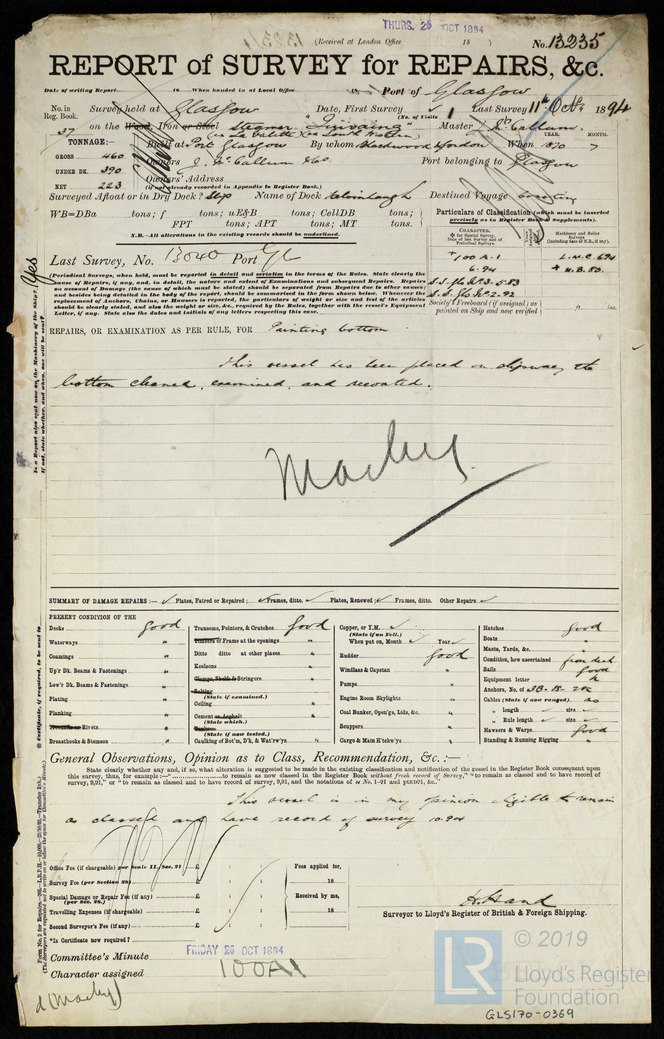 THURS. 25 OCT 1894
(Received at London Office 18 )
No. 13235
REPORT of SURVEY for REPAIRS, &c.
Date of writing Report 18 When handed in at Local Office 18 Port of Glasgow
No. in Reg. Book.
Survey held at Glasgow Date, First Survey Last Survey 11th Octr 1894
(No. of Visits 1
37 on the Wood, Iron or Steel steamer Master
TONNAGE:—
Built at Port Glasgow By whom Blackwood & Gordon When 1870 7
YEAR. MONTH.
GROSS 460
Owners J. McCallum & Co. Port belonging to Glasgow
UNDER DK. 390
Owners' Address
NET 223
(if not already recorded in Appendix to Register Book.)
Surveyed Afloat or in Dry Dock? Slip Name of Dock Kelvinhaugh Destined Voyage Coasting
WB=DBa tons; f tons; uE&B tons; CellDB tons;
FPT tons; APT tons; MT tons.
N.B.—All alterations in the existing records should be underlined.
Particulars of Classification (which must be inserted precisely as in Register Book & Supplements).
CHARACTER.
Machinery and Boiler Surveys
100 A.1 L.M.C. 6.94
6.94 N.B. 83.
S.S. Glo No 3. 5.83
S.S. Glo No 2. 92
Society's Freeboard (if assigned) as painted on Ship and now verified ft. ins.
Last Survey, No. 13040 Port Gl
(Periodical Surveys, when held, must be reported in detail and seriatim in the terms of the Rules. State clearly the cause of Repairs, if any, and, in detail, the nature and extent of Examinations and subsequent Repairs. Repairs on account of Damage (the cause of which must be stated) should be separated from Repairs due to other causes;
Letter, if any. State also the dates and initials of any letters respecting this case.
Yes
REPAIRS, OR EXAMINATION AS PER RULE, FOR Painting bottom.
This vessel has been placed on slipway the
bottom cleaned, examined, and recoated.
SUMMARY OF DAMAGE REPAIRS:— Plates, Faired or Repaired; Frames, ditto. Plates, Renewed; Frames, ditto. Other Repairs
PRESENT CONDITION OF THE
Decks good
Waterways "
Coamings "
Up'r Dk. Beams & Fastenings "
Low'r Dk. Beams & Fastenings "
Plating "
Planking "
Treenails or Rivets "
Breasthooks & Stemson "
Transoms, Pointers, & Crutches good
Timbers or Frame at the openings "
Ditto ditto at other places "
Keelsons "
Clamps, Shelfs & Stringers "
Salting
(State if examined.)
Ceiling "
Cement or Asphalt "
(State which.)
(State if now tested.)
Caulking of Bot'm, D'k, & Wat'rw'ys "
Copper, or Y.M.
(State if on Felt.)
When put on, Month Year
Rudder good
Windlass & Capstan "
Pumps "
Engine Room Skylights "
Coal Bunker, Open'gs, Lids, &c. "
Scuppers "
Cargo & Main H'tchw'ys "
Hatches good
Boats "
Masts, Yards, &c. "
Condition, how ascertained from deck
Sails good
Equipment letter
Anchors, No. of 3B. 1S. 2K
Cables (State if now ranged) no
" length size
" Rule length size
Hawsers & Warps good
Standing & Running Rigging "
General Observations, Opinion as to Class, Recommendation, &c.:—
State clearly whether any, and if so, what alteration is suggested to be made in the existing classification and notification of the vessel in the Register Book consequent upon
this survey, thus, for example:—"to remain as now classed in the Register Book without fresh record of Survey," "to remain as classed and to have record of
survey, 9,91," or "to remain as classed and to have record of survey, 9,91, and the notations of
This vessel is in my opinion eligible to remain
as classed and have record of survey 10.94
Office Fee (if chargeable) per Scale II., Sec. 27 £ : :
Survey Fee (per Section 28) £ : :
Special Damage or Repair Fee (if any) £ : :
(per Sec. 28.)
Travelling Expenses (if chargeable) £ : :
Second Surveyor's Fee (if any) £ : :
Fees applied for,
18
Received by me,
18
Surveyor to Lloyd's Register of British & Foreign Shipping.
*Is Certificate now required?
Committee's Minute FRIDAY 26 OCT 1894
Character assigned 100A1
LR
© 2019
Lloyd's Register
Foundation
GLS170-0369